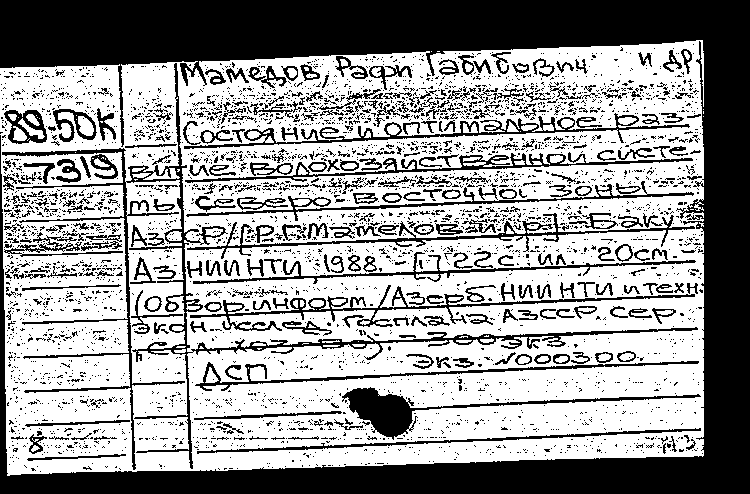 Мамедов, Рафи Габибович и др.
89-50К Состояние и оптимальное раз-
7319 витие волохозяйственной систе
мы северо-восточной зоны
АзССР/[Р.Г.Мамедов и др]. - Баку
АзНИИНТИ, 1988. - [1], 22 с. ил., 20см.
(Обзор.информ./Азерб. НИИНТИ и техн.
экон. исслед. Госплана АзССР. Сер.
"Сел. хоз-во"). - 300экз.
ДСП Экз. №000300.
8 М.З